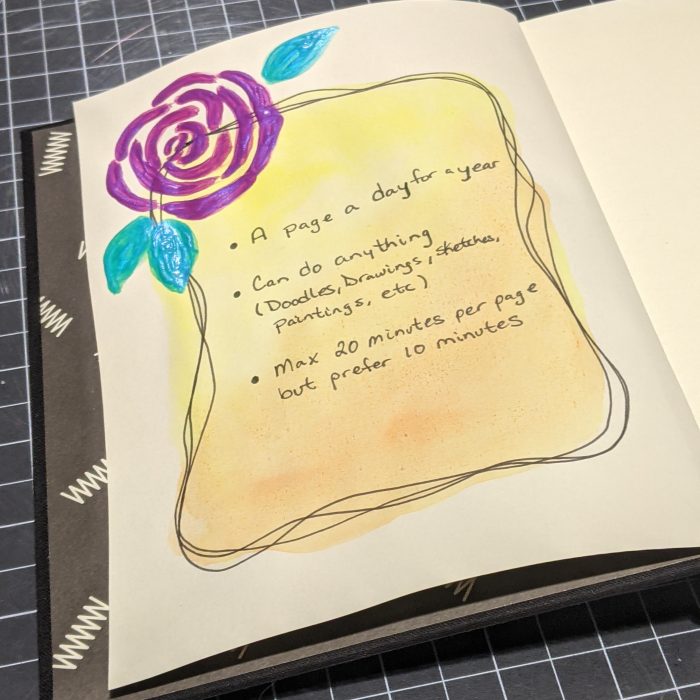 • A page a day for a year
• Can do anything
(Doodles, Drawings, sketches,
Paintings, etc)
• Max 20 minutes per page
but prefer 10 minutes